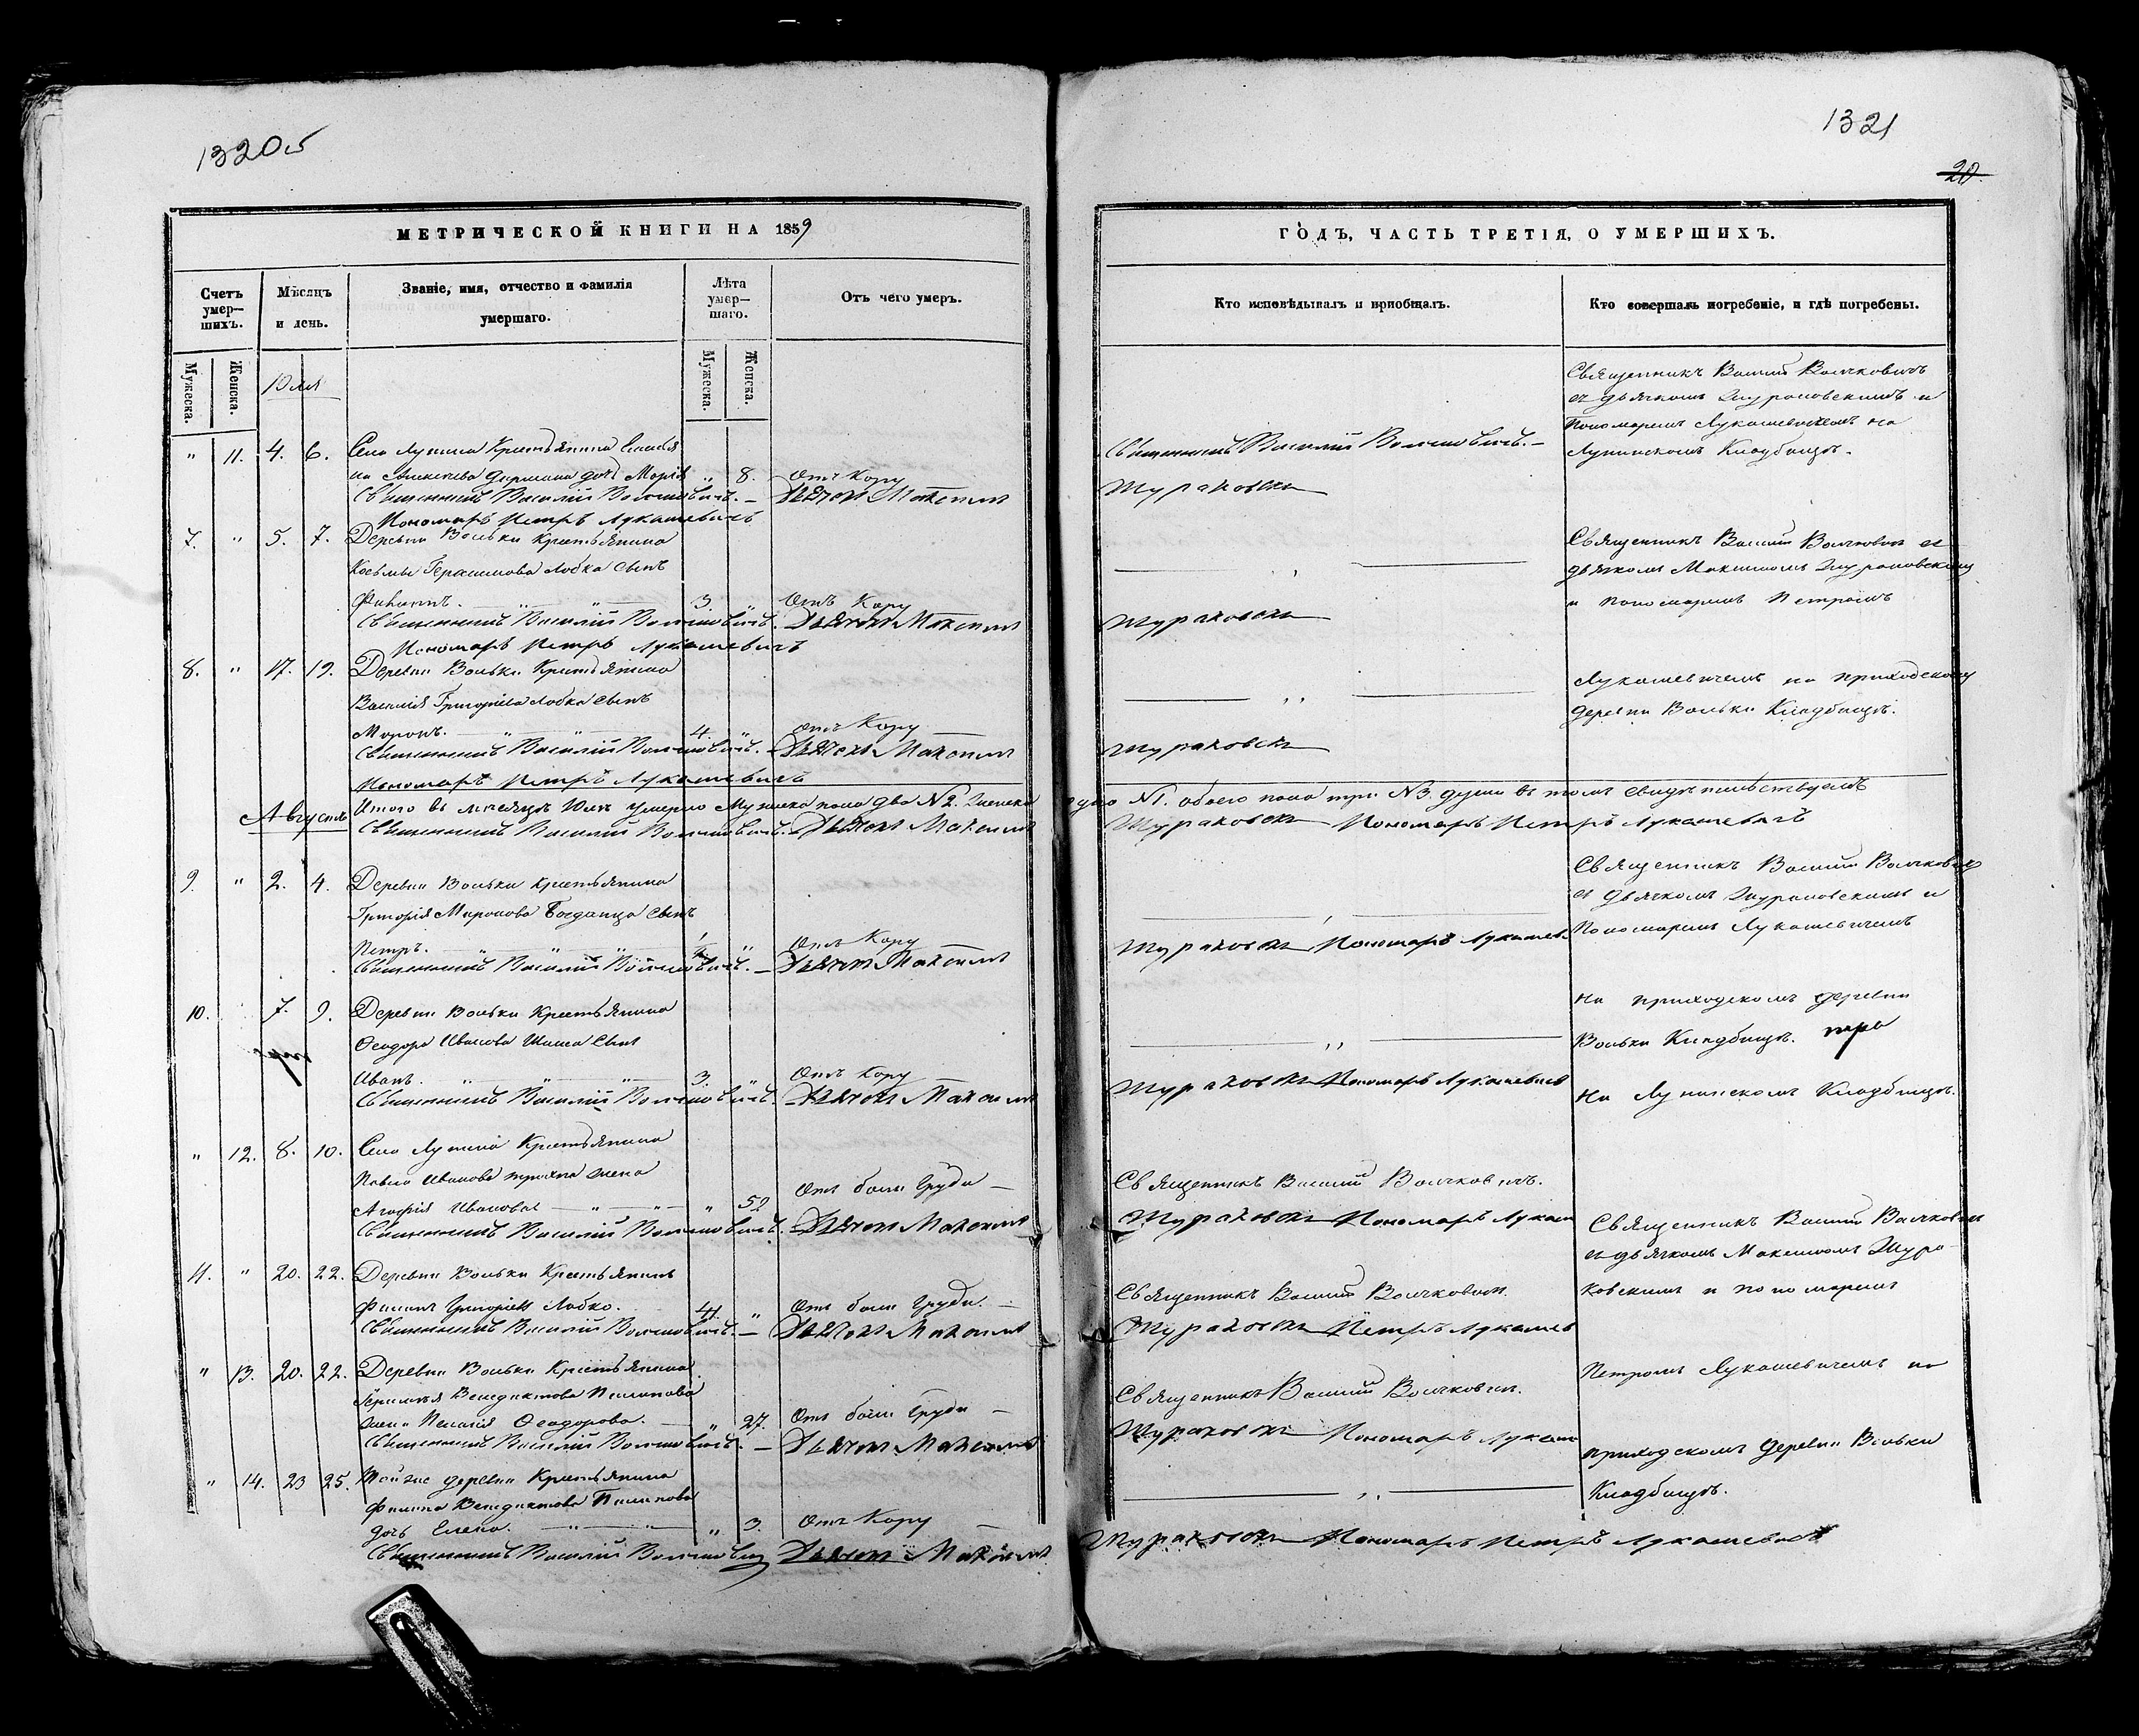 1320об
1321
20.
МЕТРИЧЕСКОЙ КНИГИ НА 1859
ГОДЪ, ЧАСТЬ ТРЕТІЯ, О УМЕРШИХЪ.
Счетъ умер—шихъ.
Мѣсяцъ и день.
Званіе, имя, отчество и фамилія умершаго.
Лѣта умер—шаго.
Отъ чего умеръ.
Кто исповѣдывалъ и пріобщалъ.
Кто совершалъ погребеніе, и гдѣ погребены.
Мужеска.
Женска.
Мужеска.
Женска.
Юля
" 11. 4. 6. Села Лунина Крестьянина
дочь Марія " 8. Отъ Кору
Священникъ Василій Волчковичъ. — Дьячокъ Максимъ
Пономаръ Петръ Лукашевичъ
Священникъ Василій Волчковичъ. —
Жураковскі
Священникъ Василій Волчковичъ
съ дьячкомъ Жураковскимъ и
Пономаремъ Лукашевичемъ на
Лунинскомъ Кладбищѣ.
7. " 5. 7. Деревни Вольки Крестьянина
Косьмы Герасимова Лобка сынъ
Филиппъ. 3. " Отъ Кору
Священникъ Василій Волчковичъ. Дьячокъ Максимъ
Пономаръ Петръ Лукашевичъ
Жураковскі
Священникъ Василій Волчковичъ съ
дьячкомъ Максимомъ Жураковскимъ
и пономаремъ Петромъ
8. " 17. 19. Деревни Вольки Крестьянина
Василія Григорьева Лобка сынъ
Миронъ. 4. " Отъ Кору
Священникъ Василій Волчковичъ. Дьячокъ Максимъ
Пономаръ Петръ Лукашевичъ
Жураковскі
Лукашевичемъ на приходскому
деревни Вольки Кладбищѣ.
Итого въ мѣсяцѣ Юлѣ умерло Мужеска пола два №2. Женска
одно №1. обоего пола три №3. души въ томъ свидѣтельствуемъ
Августъ
Священникъ Василій Волчковичъ. Дьячокъ Максимъ
Жураковскі Пономаръ Петръ Лукашевичъ
9. " 2. 4. Деревни Вольки Крестьянина
Григорія Миронова Богданца сынъ
Петръ. " Отъ Кору
Священникъ Василій Волчковичъ. — Дьячокъ Максимъ
Жураковскі Пономаръ Лукашев
Священникъ Василій Волчковичъ
съ дьячкомъ Жураковскимъ и
Пономаремъ Лукашевичемъ
10. 7. 9. Деревни Вольки Крестьянина
Ѳеодора Иванова сынъ
Иванъ. 3. " Отъ Кору
Священникъ Василій Волчковичъ. Дьячокъ Максимъ
Жураковскі Пономаръ Лукашевичъ
на приходскомъ деревни
Вольки Кладбищѣ.
На Лунинскомъ Кладбищѣ.
" 12. 8. 10. Села Лунина Крестьянина
Павла Иванова жена
Агафія Иванова " 52 Отъ боли Груди —
Священникъ Василій Волчковичъ. Дьячокъ Максимъ
Священникъ Василій Волчковичъ.
Жураковскі Пономаръ Лукаш
Священникъ Василій Волчкович
съ дьячкомъ Максимомъ Жура-
11. " 20. 22. Деревни Вольки Крестьянинъ
Филиппъ Григорьевъ Лобко. 41. " Отъ боли Груди. —
Священникъ Василій Волчковичъ. — Дьячокъ Максимъ
Священникъ Василій Волчковичъ.
Жураковскі Петръ Лукашев
ковскимъ и пономаремъ
" 13. 20. 22. Деревни Вольки Крестьянина
Венедиктова Пилипова
жена Пелагія Ѳеодорова. " 27. Отъ боли Груди —
Священникъ Василій Волчковичъ. — Дьячокъ Максимъ
Священникъ Василій Волчковичъ.
Жураковскі Пономаръ Лукаш
Петромъ Лукашевичемъ на
приходскомъ деревни Вольки
" 14. 23 25. Той же деревни Крестьянина
Филипа Венедиктова Пилипова
дочь Елена. " 3. Отъ Кору —
Священникъ Василій Волчкович Дьячокъ Максимъ
Жураковскі Пономаръ Петръ Лукашевичъ
Кладбищѣ.